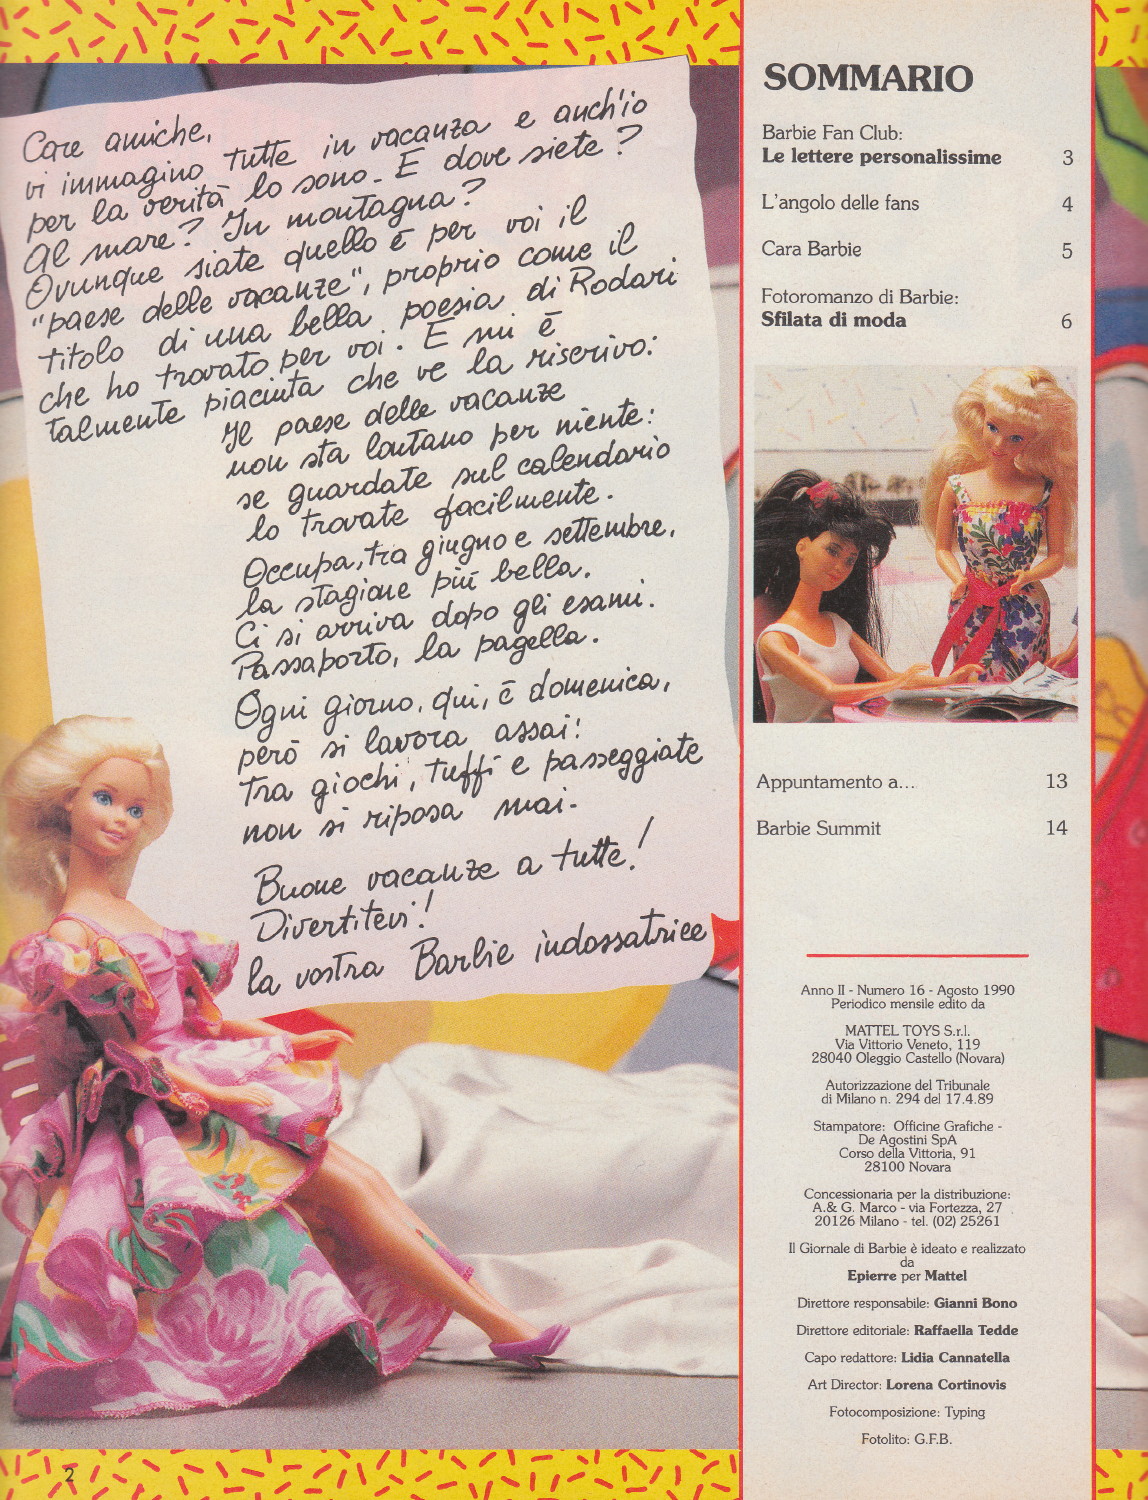 Care amiche,
vi immagino tutte in vacanza e anch'io
per la verità lo sono. E dove siete?
Al mare? In montagna?
Ovunque siate quello è per voi il
"paese delle vacanze", proprio come il
titolo di una bella poesia di Rodari
che ho trovato per voi. E mi è
talmente piaciuta che ve la riscrivo:
Il paese delle vacanze
non sta lontano per niente:
se guardate sul calendario
lo trovate facilmente.
Occupa, tra giugno e settembre,
la stagione più bella.
Ci si arriva dopo gli esami.
Passaporto, la pagella.
Ogni giorno, qui, è domenica,
però si lavora assai:
tra giochi, tuffi e passeggiate
non si riposa mai.
Buone vacanze a tutte!
Divertitevi!
la vostra Barbie indossatrice
2
SOMMARIO
Barbie Fan Club:
Le lettere personalissime 3
L'angolo delle fans 4
Cara Barbie 5
Fotoromanzo di Barbie:
Sfilata di moda 6
Appuntamento a... 13
Barbie Summit 14
Anno II - Numero 16 - Agosto 1990
Periodico mensile edito da
MATTEL TOYS S.r.l.
Via Vittorio Veneto, 119
28040 Oleggio Castello (Novara)
Autorizzazione del Tribunale
di Milano n. 294 del 17.4.89
Stampatore: Officine Grafiche -
De Agostini SpA
Corso della Vittoria, 91
28100 Novara
Concessionaria per la distribuzione:
A.& G. Marco - via Fortezza, 27
20126 Milano - tel. (02) 25261
Il Giornale di Barbie è ideato e realizzato
da
Epierre per Mattel
Direttore responsabile: Gianni Bono
Direttore editoriale: Raffaella Tedde
Capo redattore: Lidia Cannatella
Art Director: Lorena Cortinovis
Fotocomposizione: Typing
Fotolito: G.F.B.